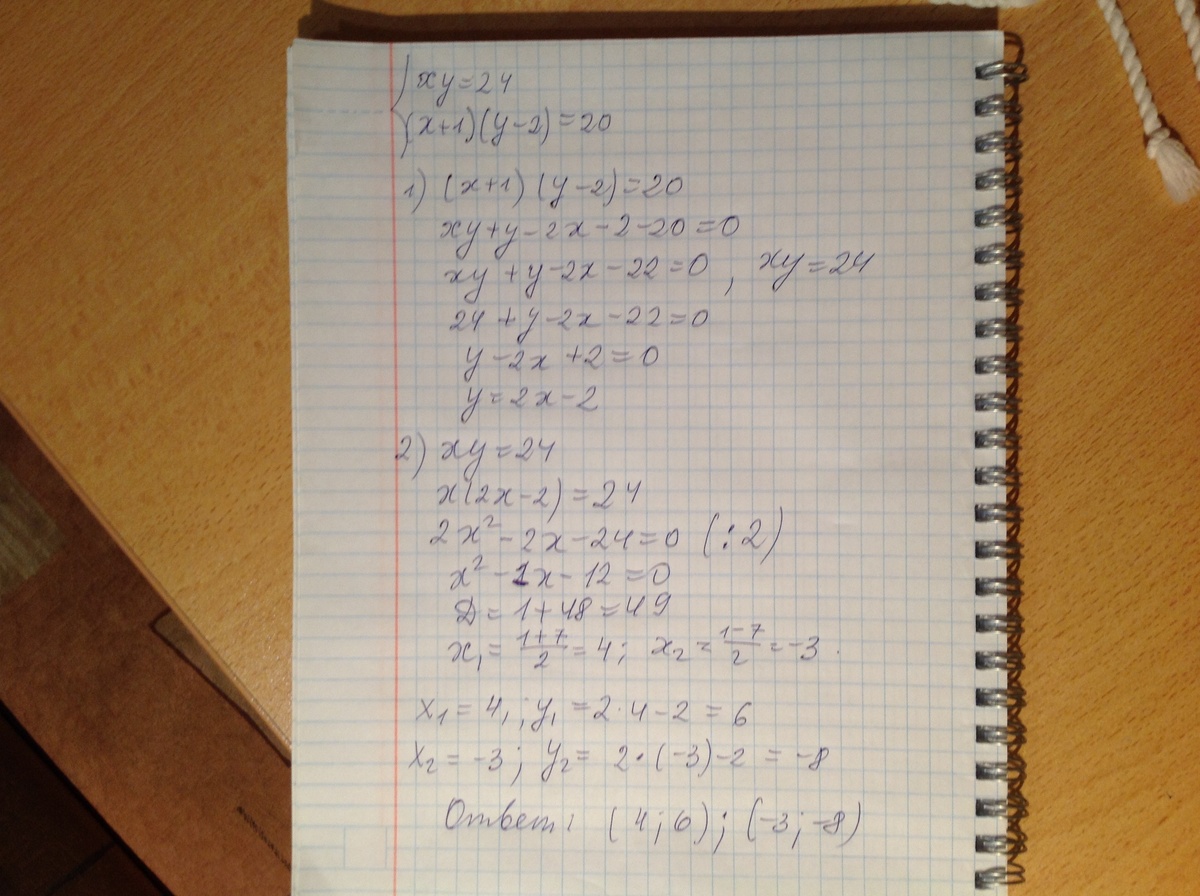 xy=24
(x+1)(y-2)=20
1) (x+1)(y-2)=20
xy+y-2x-2-20=0
xy+y-2x-22=0, xy=24
24+y-2x-22=0
y-2x+2=0
y=2x-2
2) xy=24
x(2x-2)=24
2x²-2x-24=0 (:2)
x²-1x-12=0
D=1+48=49
x₁=(1+7)/2=4; x₂=(1-7)/2=-3.
x₁=4,; y₁=2·4-2=6
x₂=-3; y₂=2·(-3)-2=-8
Ответ: (4;6); (-3;-8)